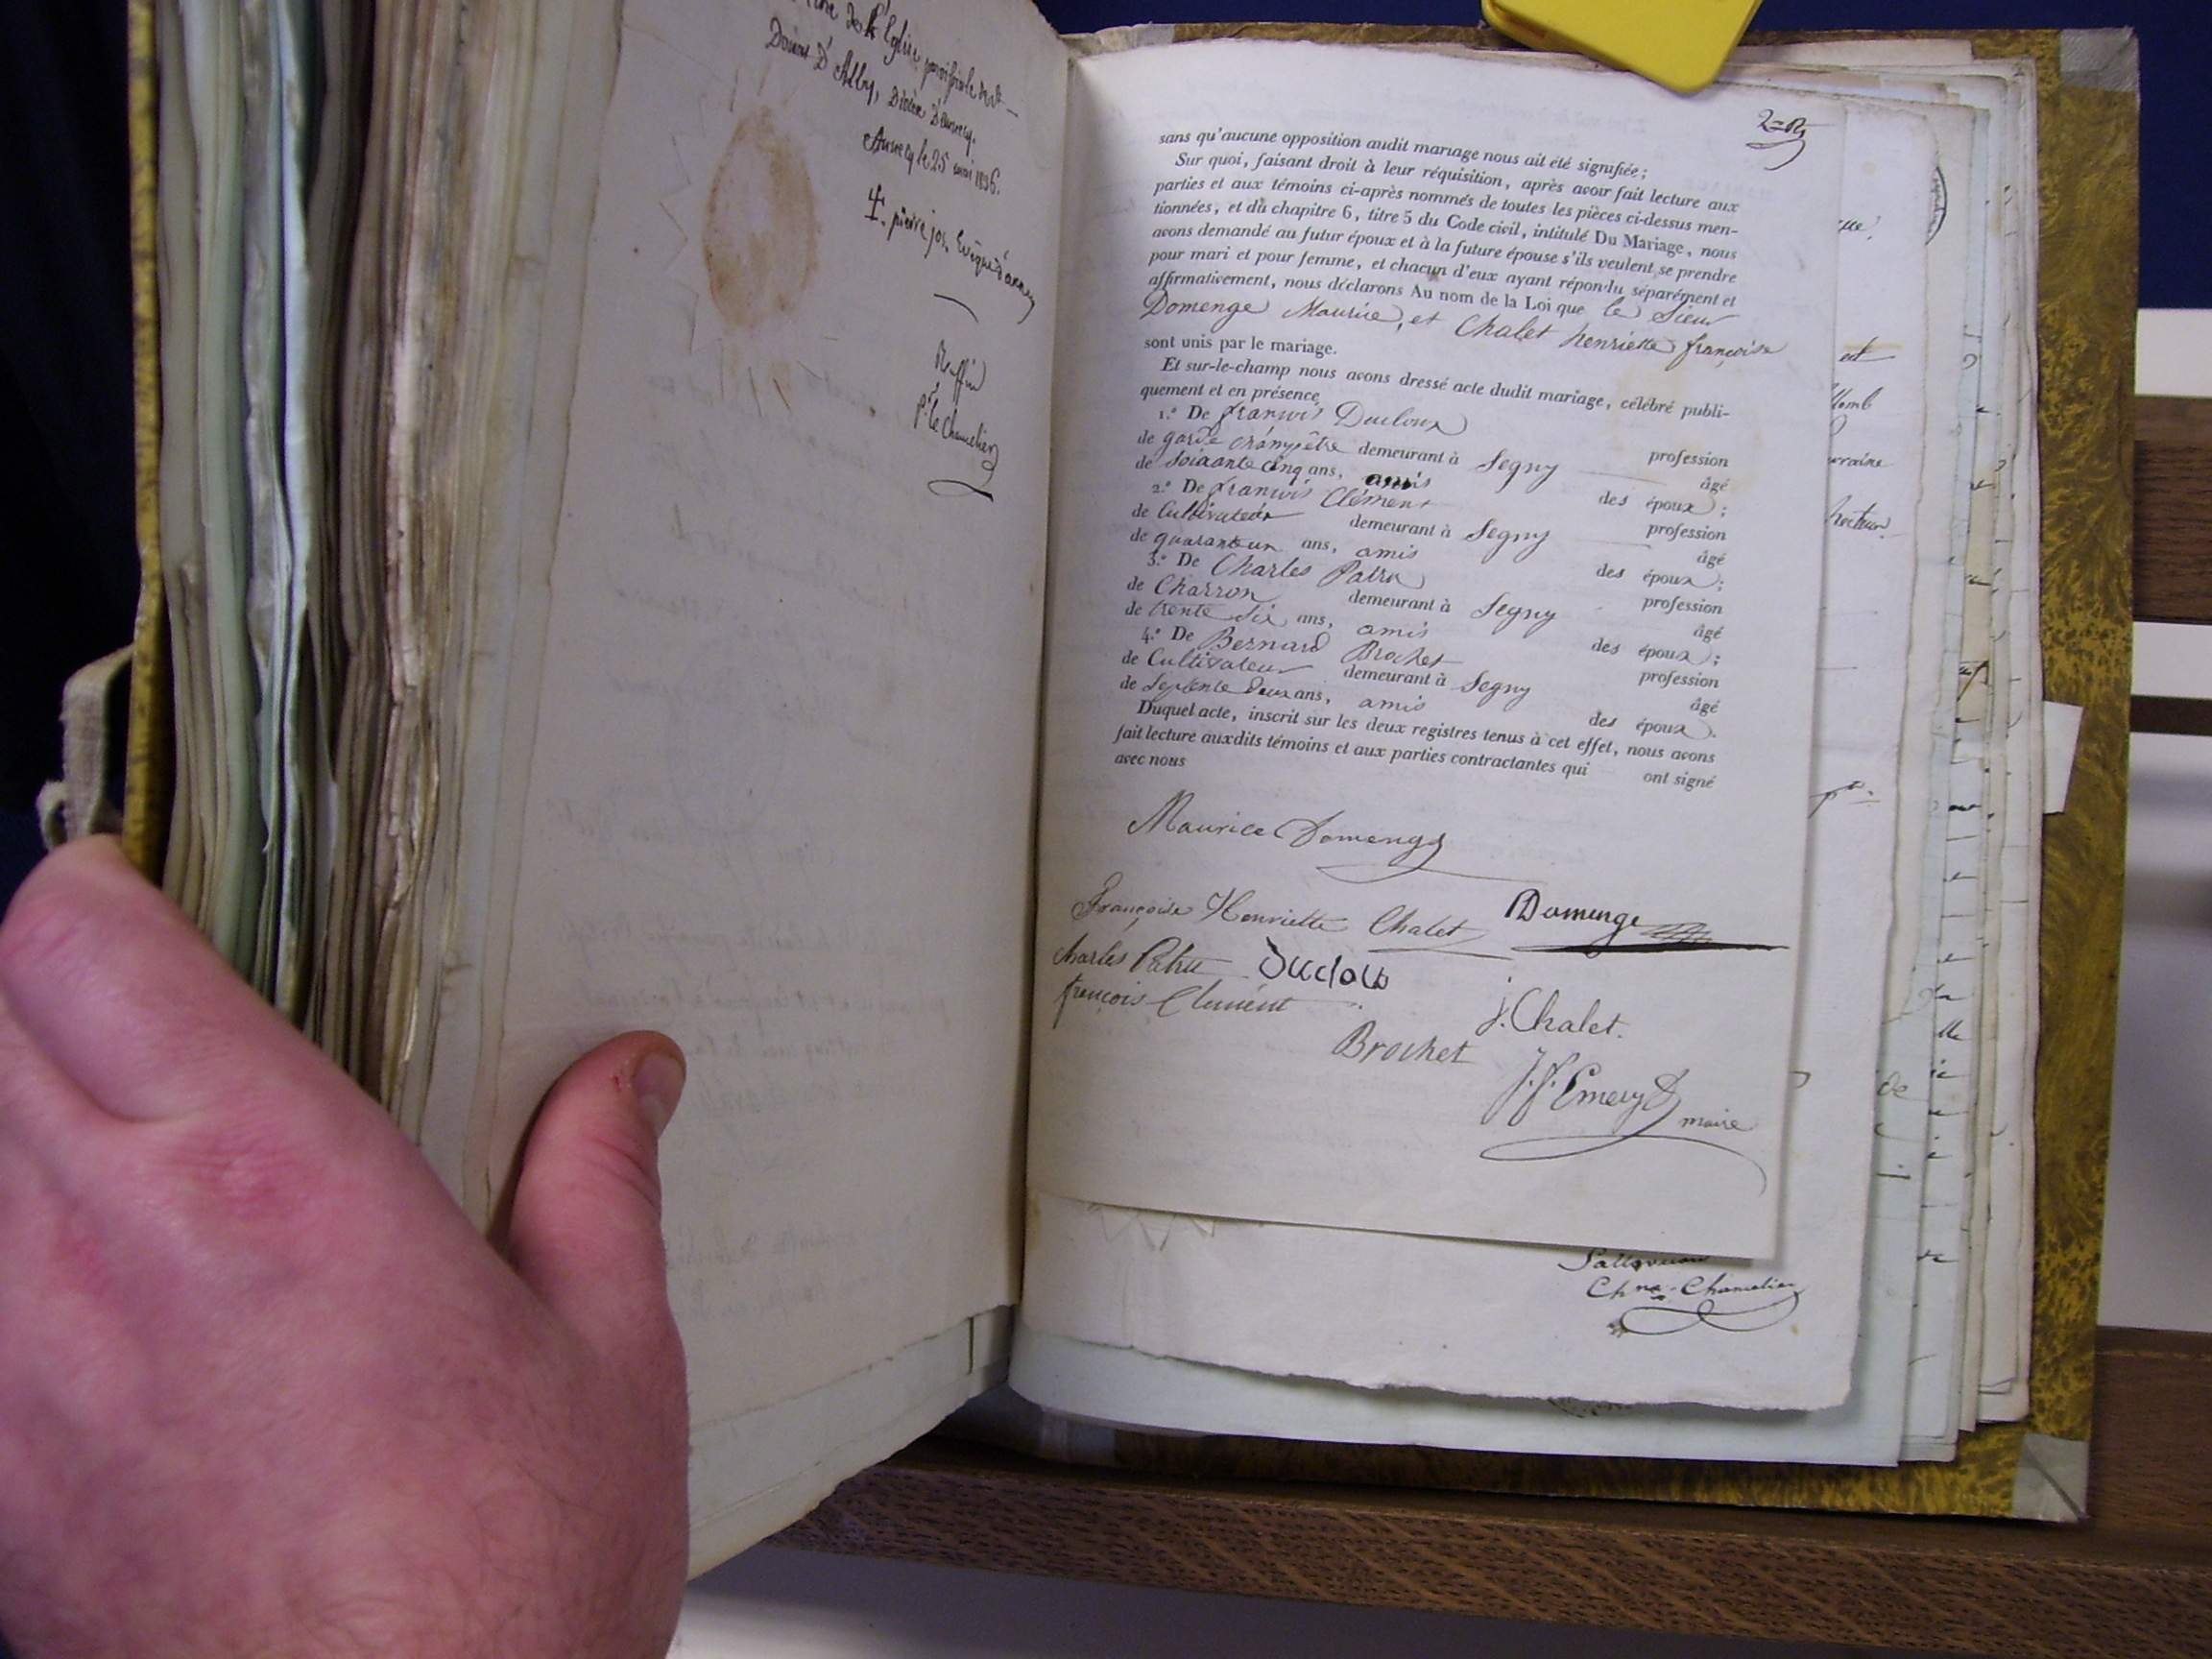 de l'Eglise paroissiale
D'Alby, Diocèse D'annecy.
Annecy le 25 mai 1836.
pierre jos. Evêque d'annecy
Ruffin
p.r le Chancelier
sans qu'aucune opposition audit mariage nous ait été signifiée;
Sur quoi, faisant droit à leur réquisition, après avoir fait lecture aux
parties et aux témoins ci-après nommés de toutes les pièces ci-dessus men-
tionnées, et du chapitre 6, titre 5 du Code civil, intitulé Du Mariage, nous
avons demandé au futur époux et à la future épouse s'ils veulent se prendre
pour mari et pour femme, et chacun d'eux ayant répondu séparément et
affirmativement, nous déclarons Au nom de la Loi que le Sieur
Domenge Maurice, et Chalet henriette françoise
sont unis par le mariage.
Et sur-le-champ nous avons dressé acte dudit mariage, célébré publi-
quement et en présence
1.º De françois Ducloux profession
de garde champêtre demeurant à Segny âgé
de Soixante cinq ans, amis des époux;
2.º De françois Clément profession
de Cultivateur demeurant à Segny âgé
de quarante un ans, amis des époux;
3.º De Charles Patru profession
de Charron demeurant à Segny âgé
de trente Six ans, amis des époux;
4.º De Bernard Brochet profession
de Cultivateur demeurant à Segny âgé
de Septente Deux ans, amis des époux.
Duquel acte, inscrit sur les deux registres tenus à cet effet, nous avons
fait lecture auxdits témoins et aux parties contractantes qui ont signé
avec nous
Maurice Domenge
Françoise Henriette Chalet Domenge
Charles Patru Duclou
françois Clement j. Chalet.
Brochet
J. f. Emery
maire
Ch.ne-Chancelier